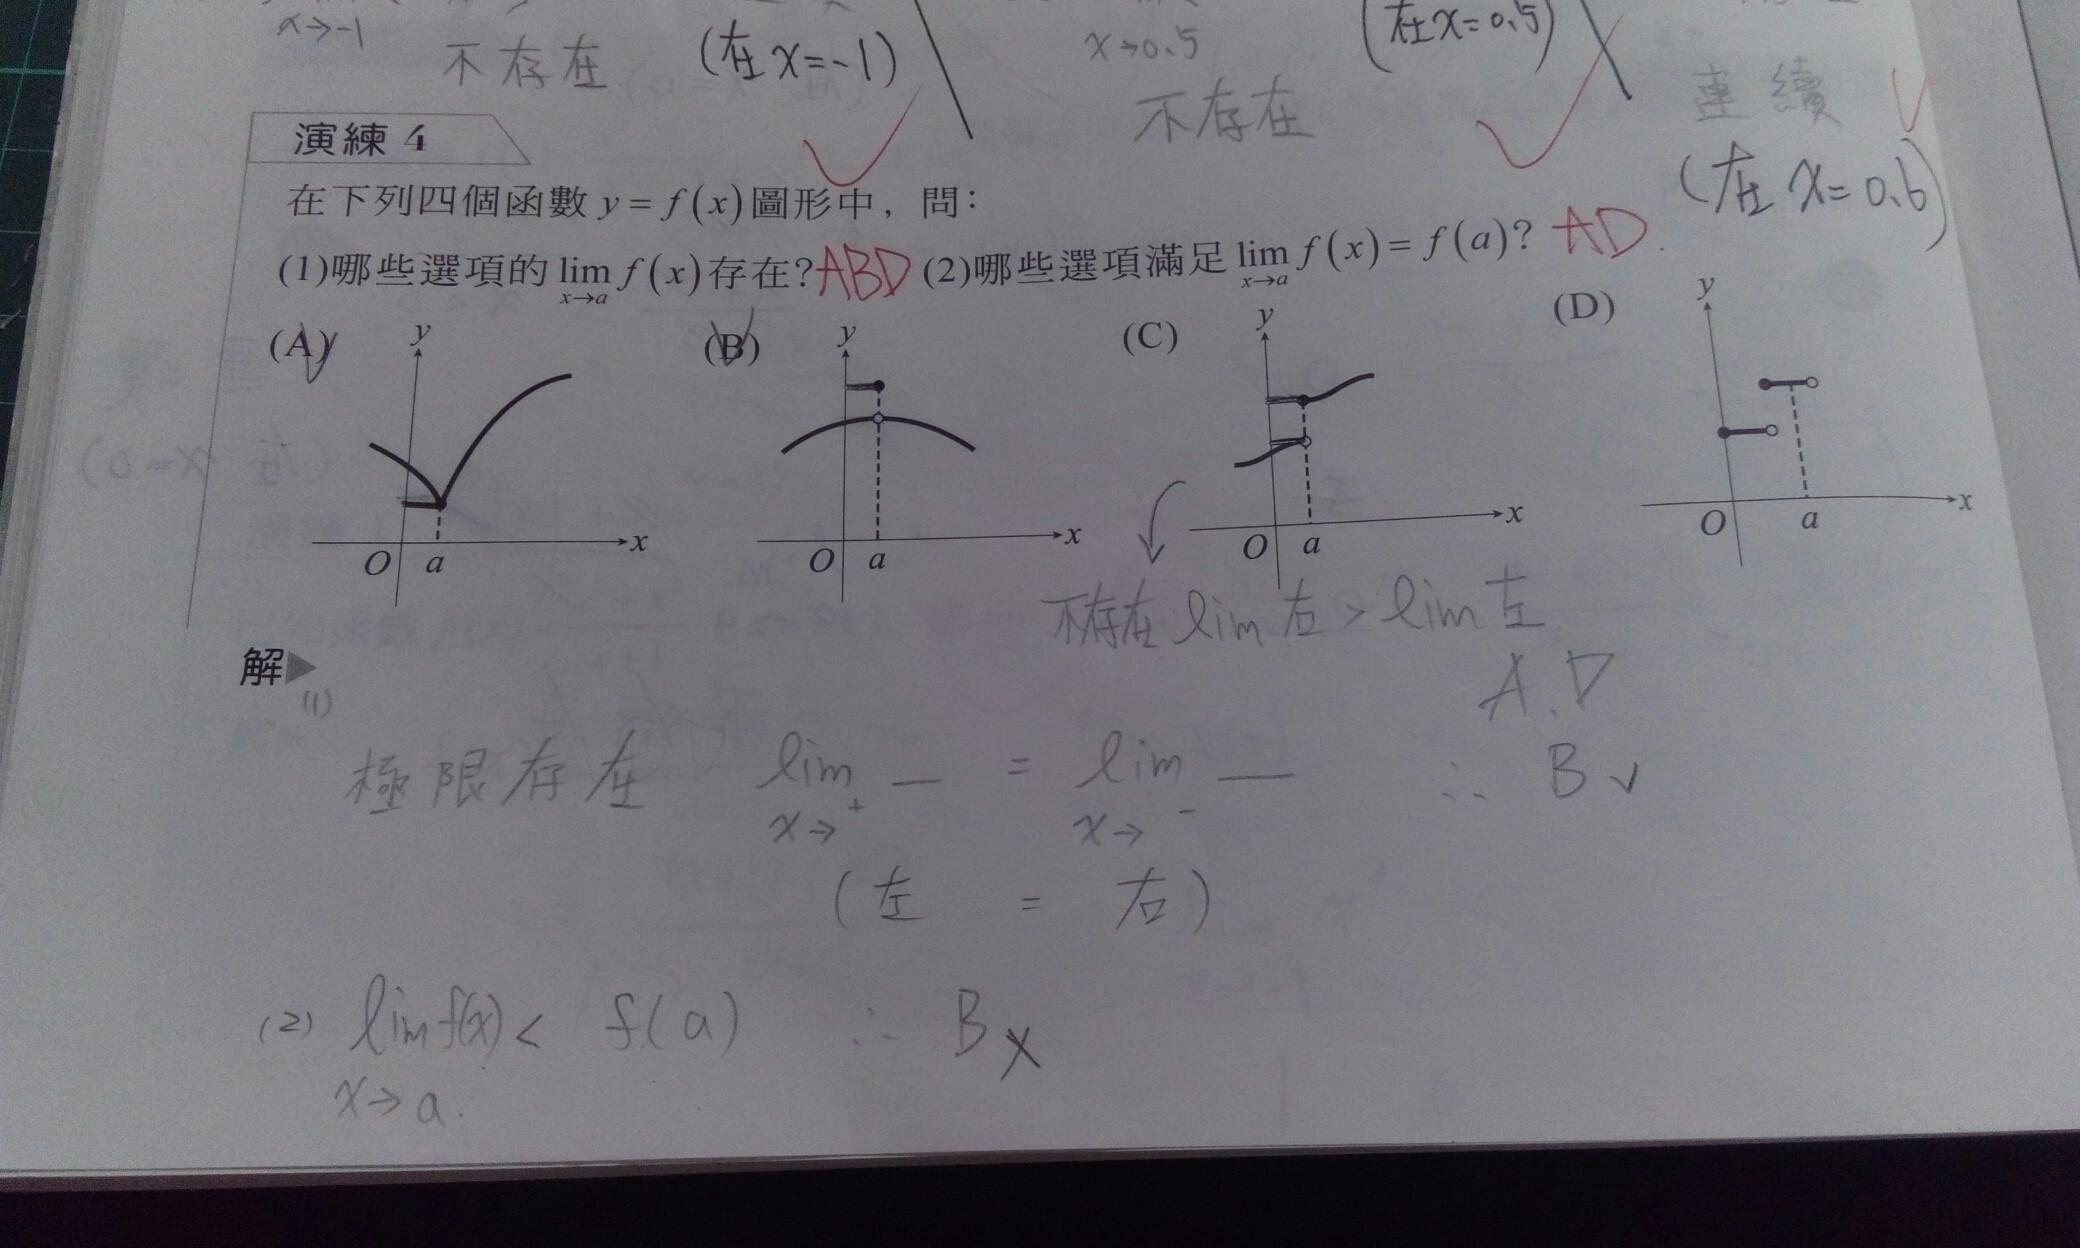 x→-1 不存在 (在 x=-1) x→0.5 不存在 (在x=0.5) 連續 (在 x=0.6)
演練 4
在下列四個函數 y = f(x) 圖形中，問：
(1)哪些選項的 lim f(x) 存在？ABD (2)哪些選項滿足 lim f(x) = f(a)？ AD.
x→a x→a
(A) (B) (C) (D)
y y y y
O a x O a x O a x O a x
不存在 lim 右 > lim 左
解▶
(1)
A.D
極限存在 lim — = lim — ∴ B ✓
x→ + x→ -
(左 = 右)
(2) lim f(x) < f(a) ∴ B ×
x→a.